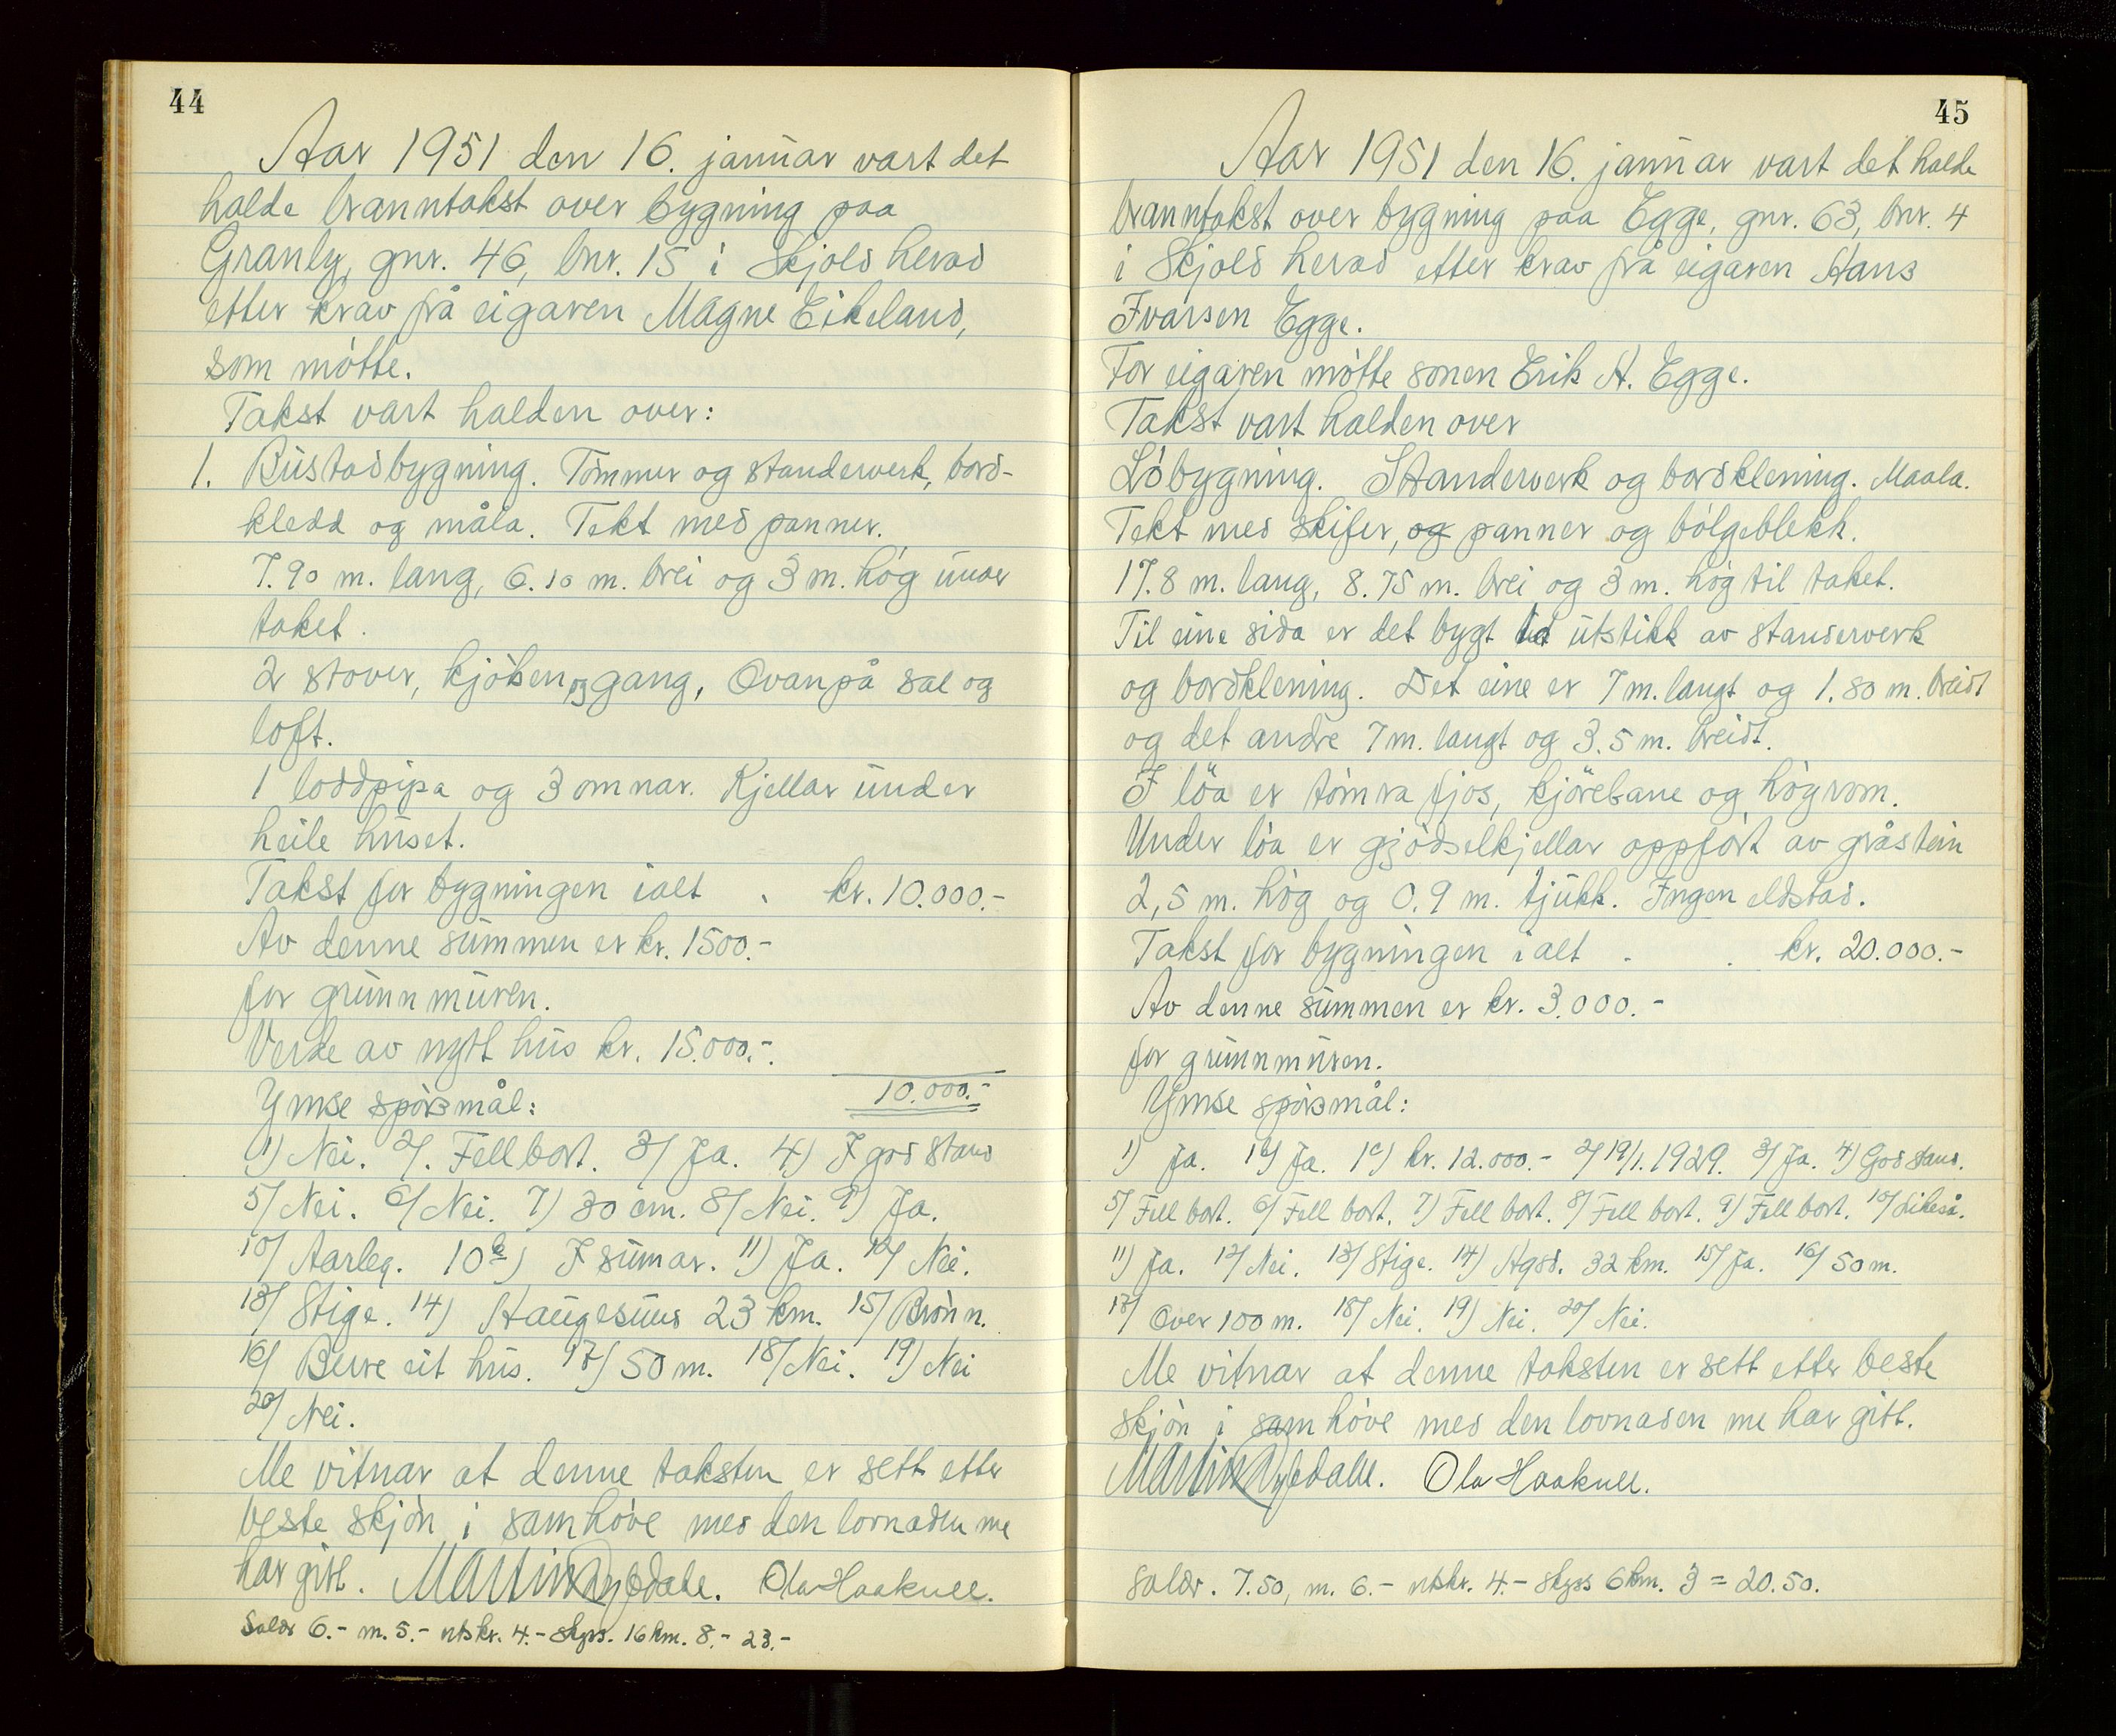 44
Aar 1951 den 16. januar vart det
halde branntakst over bygning paa
Granly, gnr. 46, bnr. 15 i Skjold herad
etter krav frå eigaren Magne Eikeland,
som møtte.
Takst vart halden over:
1. Bustadbygning. Tømmer og standerverk, bord-
kledd og måla. Tekt med panner.
7.90 m. lang, 6.10 m. brei og 3 m. høg under
taket.
2 stover, kjøken og gang, Ovanpå sal og
loft.
1 loddpipa og 3 omnar. Kjellar under
heile huset.
Takst for bygningen ialt . kr. 10.000.-
Av denne summen er kr. 1500.-
for grunnmuren.
Verde av nytt hus kr. 15.000.-.
Ymse spørsmål: 10.000.-
1) Nei. 2/. Fell bort. 3/ Ja. 4) I god stand
5/ Nei. 6/ Nei. 7) 30 cm. 8/ Nei. 9) Ja.
10/ Aarleg. 10b) I sumar. 11) Ja. 12/ Nei.
13/ Stige. 14) Haugesund 23 km. 15/ Brønn.
16/ Berre eit hus. 17/ 50 m. 18/ Nei. 19) Nei
20/ Nei.
Me vitnar at denne taksten er sett etter
beste skjøn i samhøve med den lovnaden me
har gitt. Martin Ola Haakull.
Saldr 6.- m. 5.- utskr. 4.- skyss. 16 km. 8.- 23.-
45
Aar 1951 den 16. januar vart det halde
branntakst over bygning paa Egge, gnr. 63, bnr. 4
i Skjold herad etter krav frå eigaren Hans
Ivarsen Egge.
For eigaren møtte sonen Erik H. Egge.
Takst vart halden over
Løbygning. Standerverk og bordklening. Maala.
Tekt med skifer, og panner og bølgeblekk.
17.8 m. lang, 8.75 m. brei og 3 m. høg til taket.
Til eine sida er det bygt to utstikk av standerverk
og bordklening. Det eine er 7 m. langt og 1.80 m. breidt
og det andre 7 m. langt og 3.5 m. breidt.
I löa er tømra fjos, kjörebane og högrom.
Under løa er gjødselkjellar oppført av gråstein
2,5 m. høg og 0.9 m. tjukk. Ingen eldstad.
Takst for bygningen ialt . . kr. 20.000.-
Av denne summen er kr. 3.000.-
for grunnmuren.
Ymse spørsmål:
1) Ja. 1b) Ja. 1c) kr. 12.000.- 2/ 19/1. 1929. 3/ Ja. 4) God stand.
5/ Fell bort. 6/ Fell bort. 7) Fell bort. 8/ Fell bort. 9) Fell bort. 10/ Likeså.
11) Ja. 12/ Nei. 13/ Stige. 14) Hgsd. 32 km. 15/ Ja. 16/ 50 m.
17/ Over 100 m. 18/ Nei. 19) Nei. 20/ Nei.
Me vitnar at denne taksten er sett etter beste
skjøn i samhøve med den lovnaden me har gitt.
Martin Ola Haakull.
Saldr. 7.50, m. 6.- utskr. 4.- skyss 6 km. 3 = 20.50.